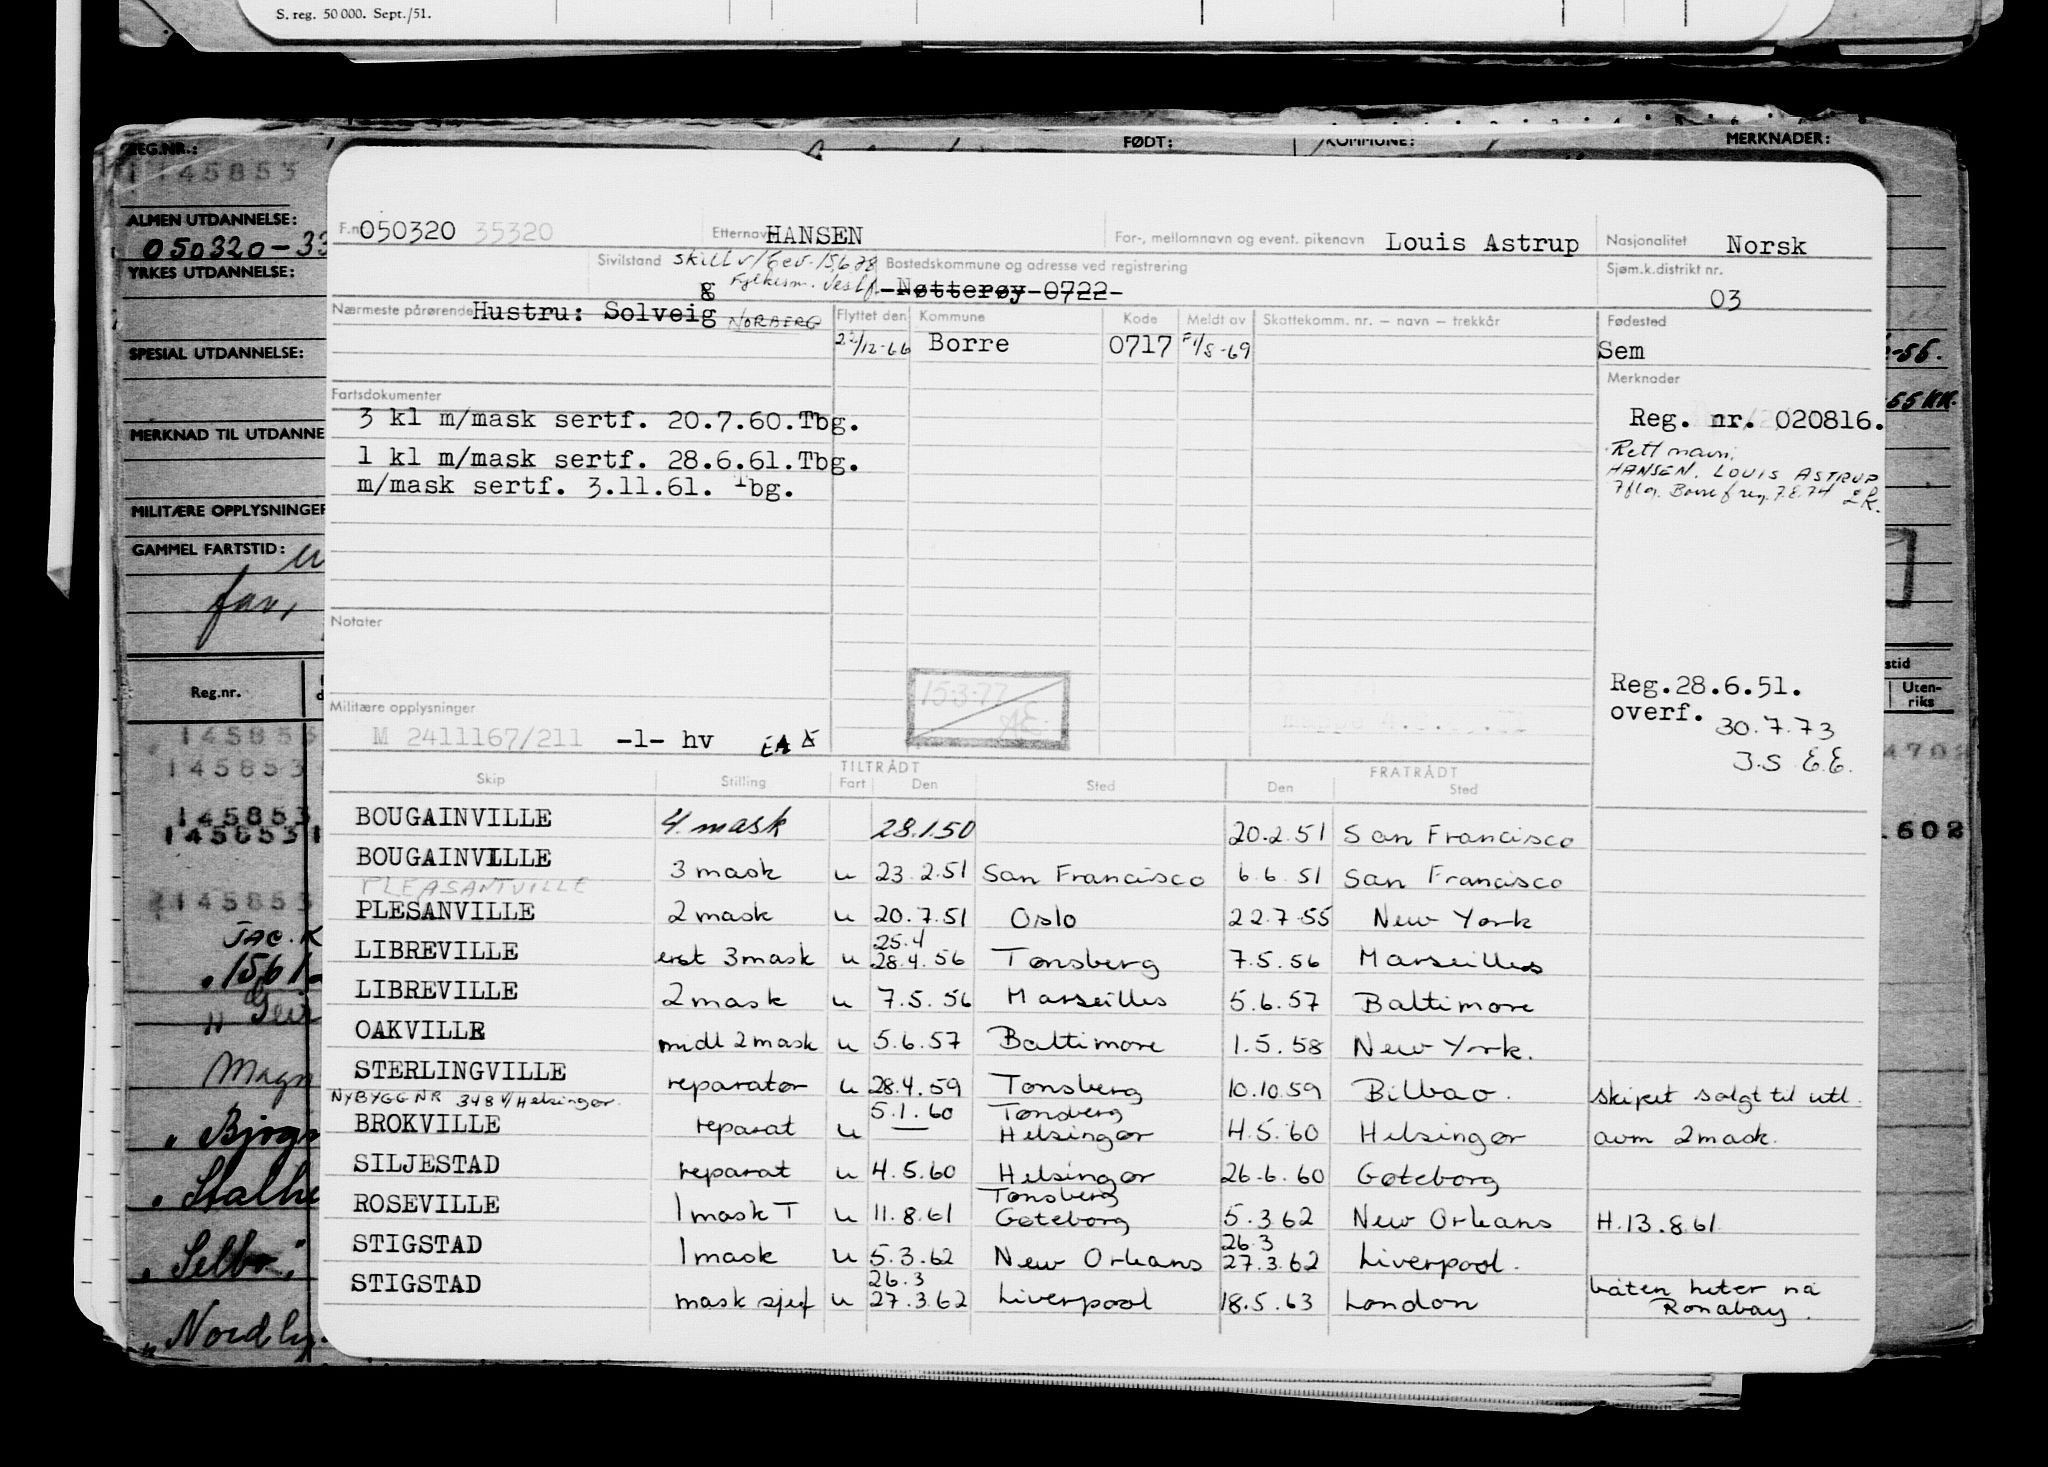 S. reg. 50 000. Sept./51.
REG.NR.: FØDT: KOMMUNE: MERKNADER:
145853
ALMEN UTDANNELSE:
050320-33
YRKES UTDANNELSE:
SPESIAL UTDANNELSE:
MERKNAD TIL UTDANNE
MILITÆRE OPPLYSNINGER
GAMMEL FARTSTID:
fav,
Reg.nr.
145853
145853
145853
145853
145853
JAC. K
Magn
Bjørgs
Stalhe
Nordly
-55.
55 KK.
stid
Uten-
riks
4702
602
F.n 050320 35320 Etternavn HANSEN For-, mellomnavn og event. pikenavn Louis Astrup Nasjonalitet Norsk
Sivilstand skilt v/bev. 15.6.78 Bostedskommune og adresse ved registrering Sjøm.k.distrikt nr.
g Fylkesm. Vestf. -Nøtterøy-0722- 03
Nærmeste pårørende Hustru: Solveig NORBERG Flyttet den Kommune Kode Meldt av Skattekomm. nr. – navn – trekkår Fødested
22/12-66 Borre 0717 F 1/8-69 Sem
Merknader
Fartsdokumenter
3 kl m/mask sertf. 20.7.60.Tbg. Reg. nr. 020816.
1 kl m/mask sertf. 28.6.61.Tbg. Rett navn:
HANSEN, LOUIS ASTRUP
m/mask sertf. 3.11.61. Tbg. Borre f.reg. 7.8.74
Notater
Reg.28.6.51.
15.3.77
Militære opplysninger overf. 30.7.73
M 2411167/211 -1- hv J.S E.E.
TILTRÅDT FRATRÅDT
Skip Stilling Fart Den Sted Den Sted
BOUGAINVILLE 4. mask 28.1.50 20.2.51 San Francisco
BOUGAINVILLE 3 mask u 23.2.51 San Francisco 6.6.51 San Francisco
PLEASANTVILLE
PLESANVILLE 2 mask u 20.7.51 Oslo 22.7.55 New York
25.4
LIBREVILLE erst 3 mask u 28.4.56 Tønsberg 7.5.56 Marseilles
LIBREVILLE 2 mask u 7.5.56 Marseilles 5.6.57 Baltimore
OAKVILLE midl 2 mask u 5.6.57 Baltimore 1.5.58 New York.
STERLINGVILLE reparatør u 28.4.59 Tønsberg 10.10.59 Bilbao. skipet solgt til utl.
NYBYGG NR 348 v/Helsingør. 5.1.60 Tønsberg
BROKVILLE reparat u — Helsingør 4.5.60 Helsingør avm 2 mask.
SILJESTAD reparat u 4.5.60 Helsingør 26.6.60 Gøteborg
Tønsberg
ROSEVILLE 1 mask T u 11.8.61 Gøteborg 5.3.62 New Orleans H.13.8.61
26.3
STIGSTAD 1 mask u 5.3.62 New Orleans 27.3.62 Liverpool.
26.3
STIGSTAD mask sjef u 27.3.62 Liverpool 18.5.63 London båten heter nå
Ronabay.